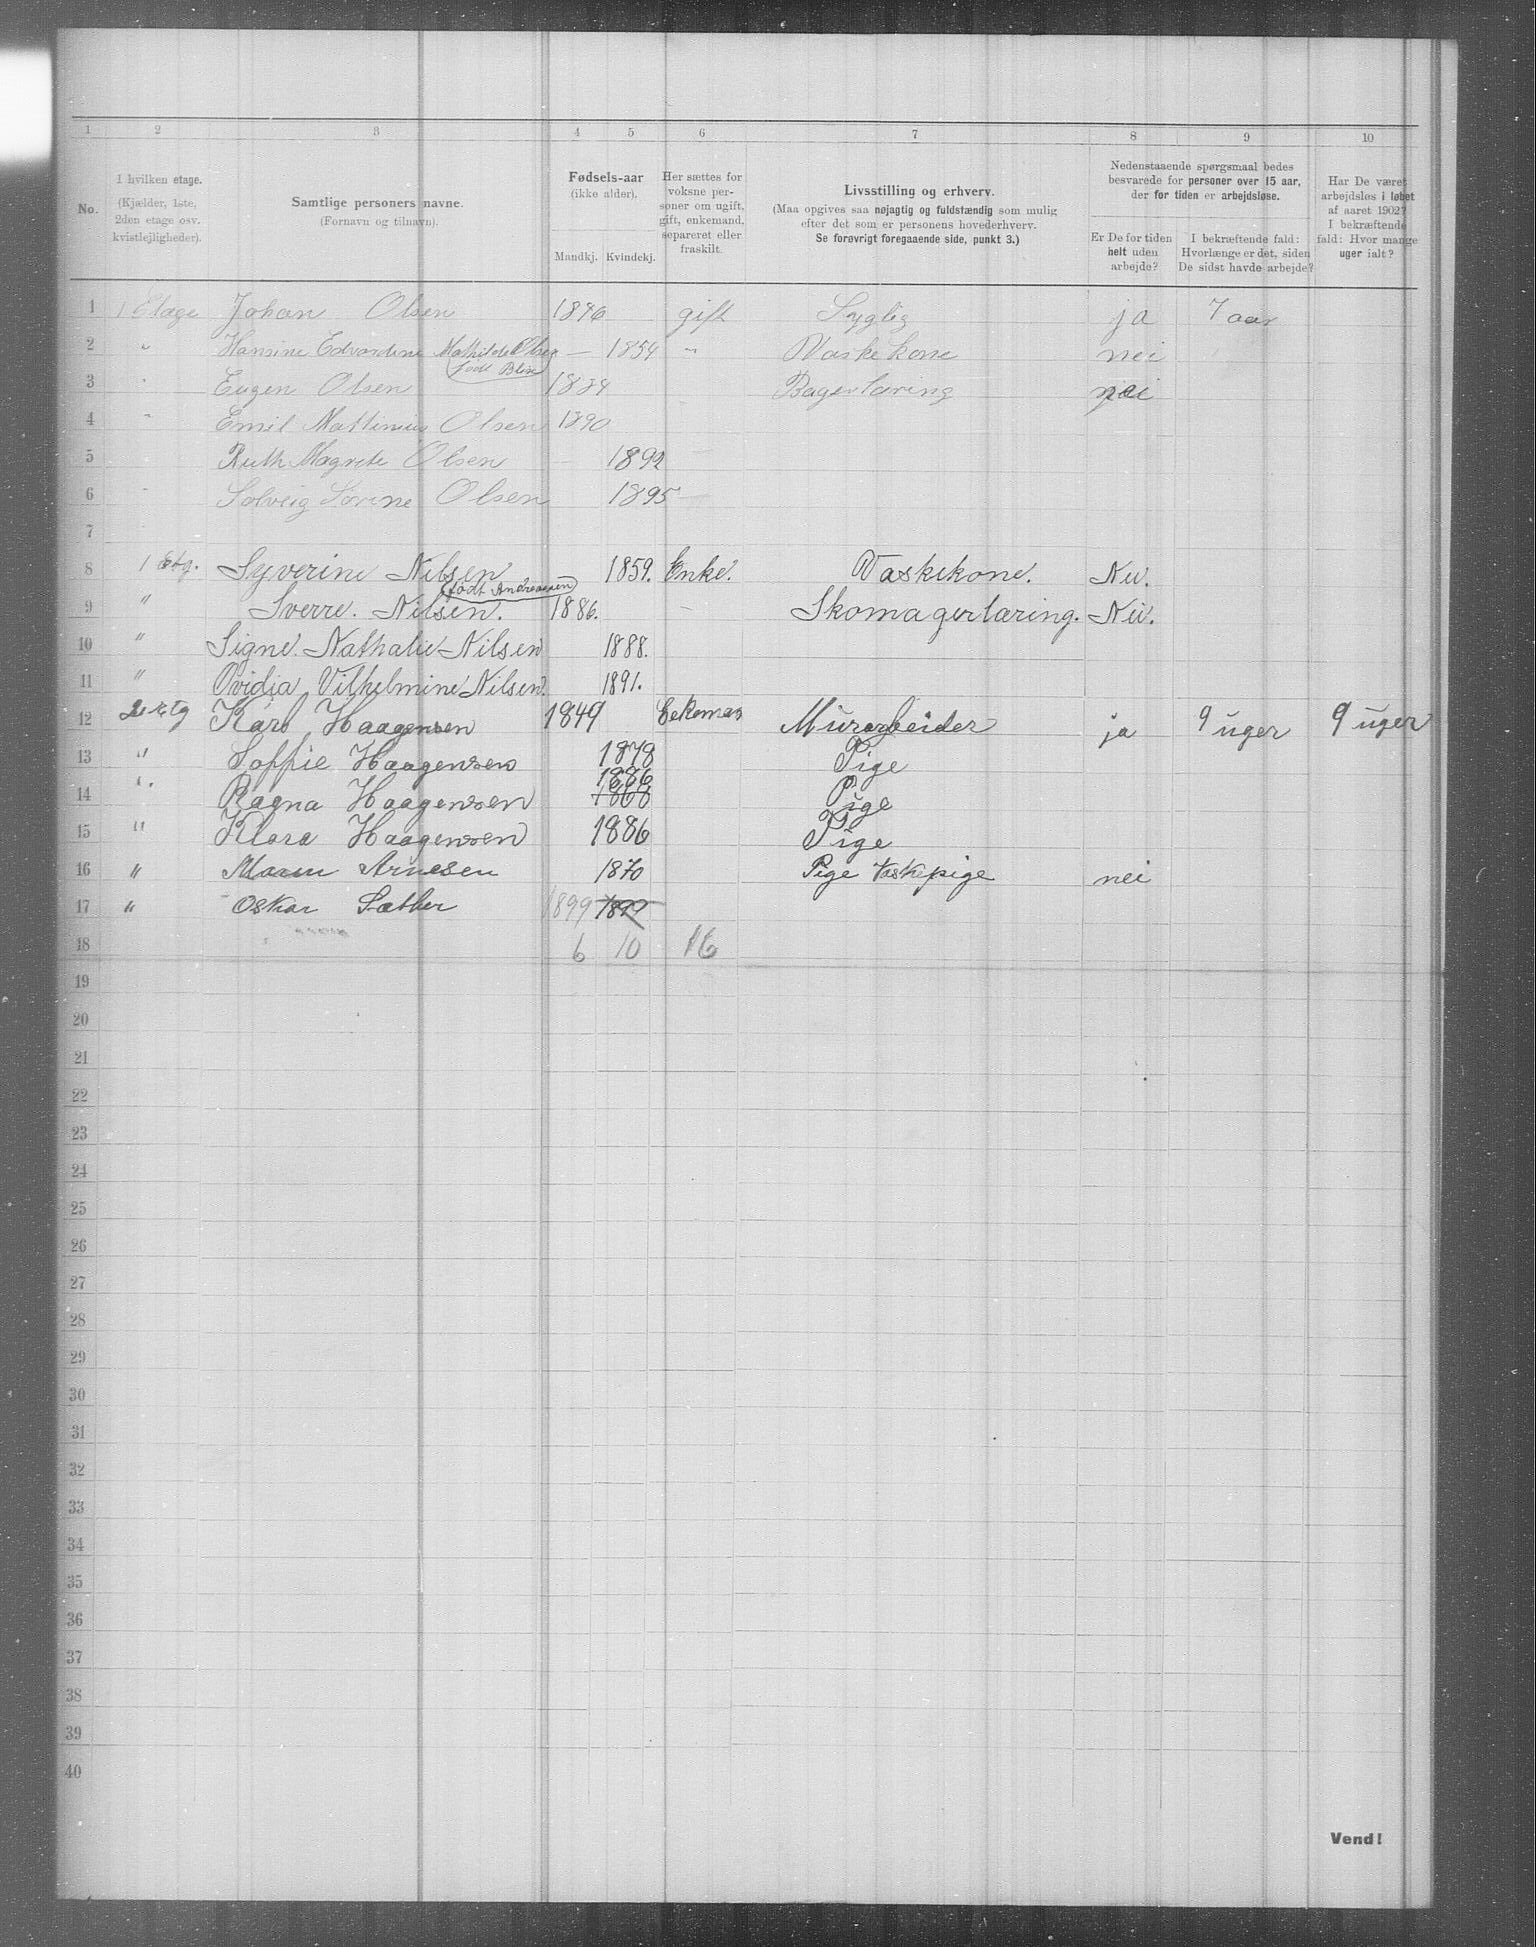 1 2 3 4 5 6 7 8 9 10
No.
I hvilken etage.
(Kjælder, 1ste,
2den etage osv.
kvistlejligheder).
Samtlige personers navne.
(Fornavn og tilnavn).
Fødsels-aar
(ikke alder).
Mandkj. Kvindekj.
Her sættes for
voksne per-
soner om ugift,
gift, enkemand,
separeret eller
fraskilt.
Livsstilling og erhverv.
(Maa opgives saa nøjagtig og fuldstændig som mulig
efter det som er personens hovederhverv.
Se forøvrigt foregaaende side, punkt 3.)
Nedenstaaende spørgsmaal bedes
besvarede for personer over 15 aar,
der for tiden er arbejdsløse.
Er De for tiden
helt uden
arbejde?
I bekræftende fald:
Hvorlænge er det, siden
De sidst havde arbejde?
Har De været
arbejdsløs i løbet
af aaret 1902?
I bekræftende
fald: Hvor mange
uger ialt?
1 1 Etage Johan Olsen 1846 gift Syglig ja 7 aar
2 " Hansine Edvardine Mathilde Olsen født Blix — 1854 " Vaskekone nei
3 " Eugen Olsen 1884 Bagerlæring nei
4 " Emil Mattinius Olsen 1890
5 Ruth Magrete Olsen 1892
6 " Solveig Sorine Olsen 1895
7
8 1 Etg. Syverine Nilsen født Andreassen 1859. Enke. Vaskekone. Nei.
9 " Sverre. Nilsen. 1886. Skomagerlæring. Nei.
10 " Signe. Nathalie Nilsen 1888.
11 " Ovidia Vilhelmine Nilsen. 1891.
12 2 etg Karl Haagensen 1849 Eekeman Murarbeider ja 9 uger 9 uger
13 " Soffie Haagensen 1878 Pige
14 " Ragna Haagensen 1886 1868 Pige
15 " Klara Haagensen 1886 Pige
16 " Arnesen 1870 Pige Vaskepige nei
17 " Oskar Sæther 1899 1899
18 6 10 16
19
20
21
22
23
24
25
26
27
28
29
30
31
32
33
34
35
36
37
38
39
40
Vend!